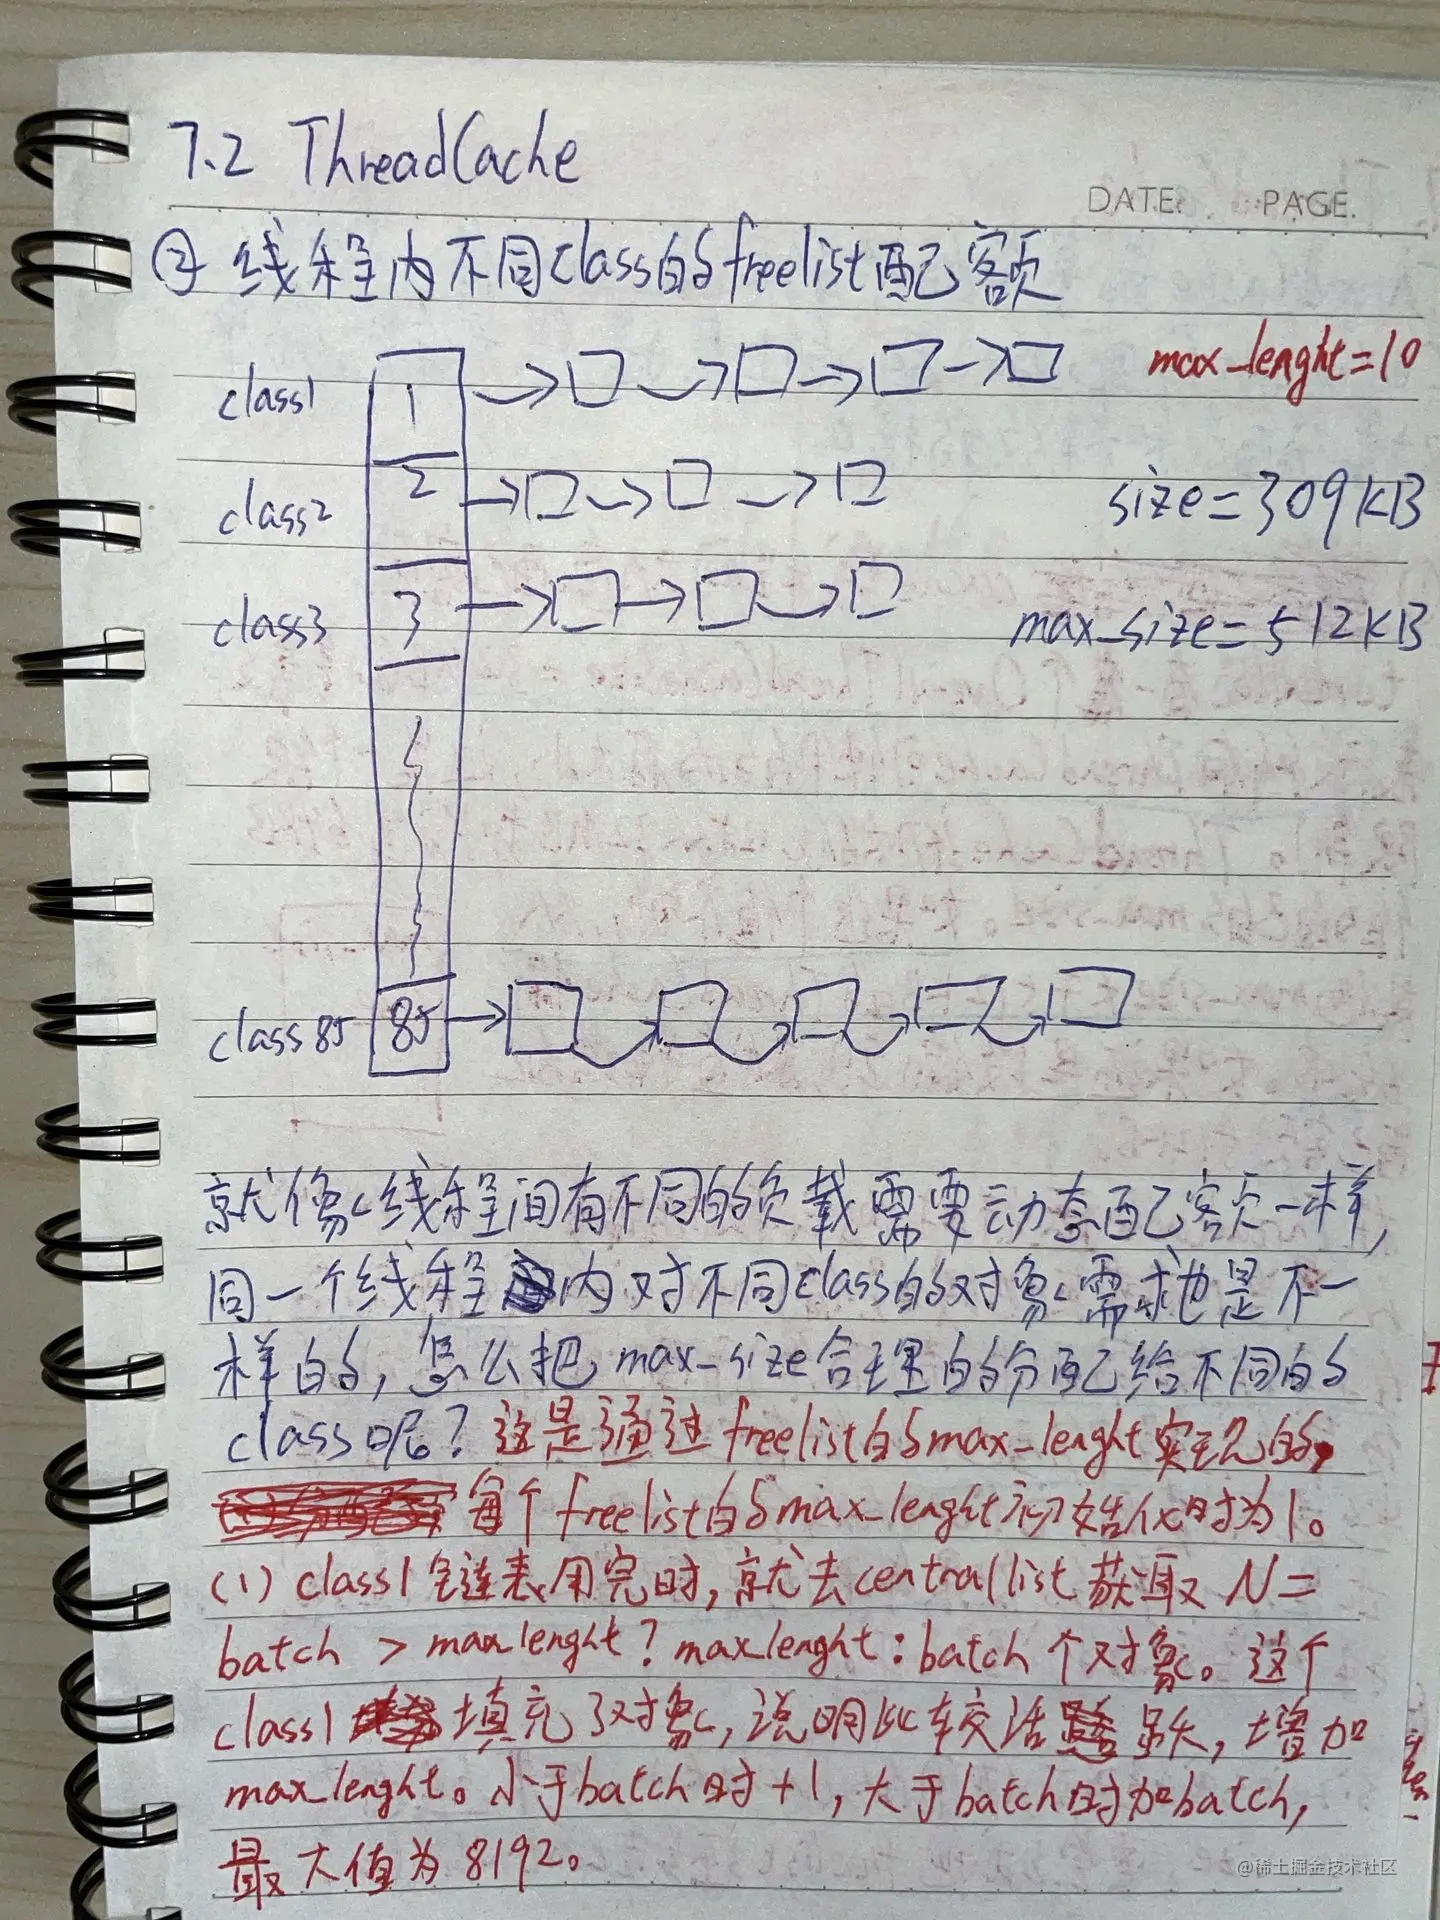 7.2 ThreadCache
DATE. PAGE.
② 线程内不同class的freelist配额
class1 1 max_lenght=10
class2 2 size=309KB
class3 3 max_size=512KB
class85 85
就像线程间有不同的负载需要动态配额一样,
同一个线程内对不同class的对象需求也是不一
样的, 怎么把max_size合理的分配给不同的
class呢? 这是通过freelist的max_lenght实现的,
每个freelist的max_lenght初始化时为1。
(1) class1 链表用完时, 就去central list 获取 N=
batch > maxlenght? maxlenght: batch 个对象。这个
class1 填充了对象, 说明比较活跃, 增加
max_lenght。小于batch时+1, 大于batch时加batch,
最大值为8192。
@稀土掘金技术社区